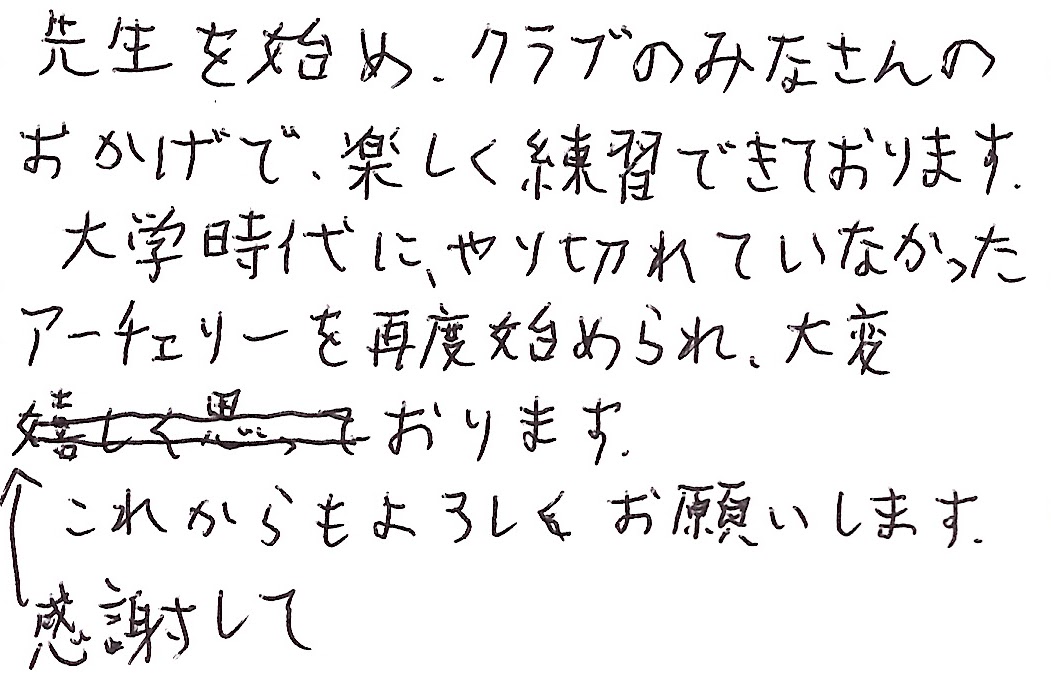 先生を始め、クラブのみなさんの
おかげで、楽しく練習できております。
大学時代に、やり切れていなかった
アーチェリーを再度始められ、大変
嬉しく思っております。
これからもよろしくお願いします。
感謝して